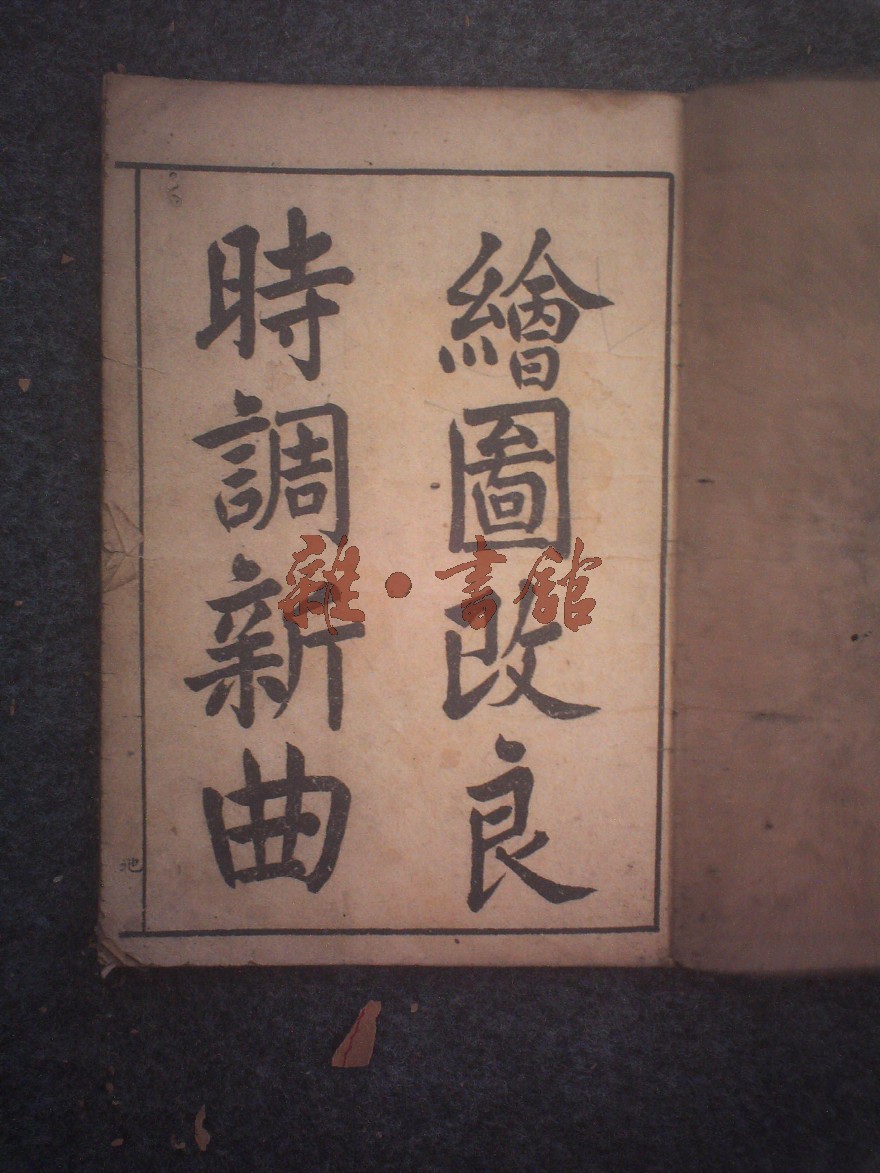 繪圖改良
時調新曲
雜·書館
地